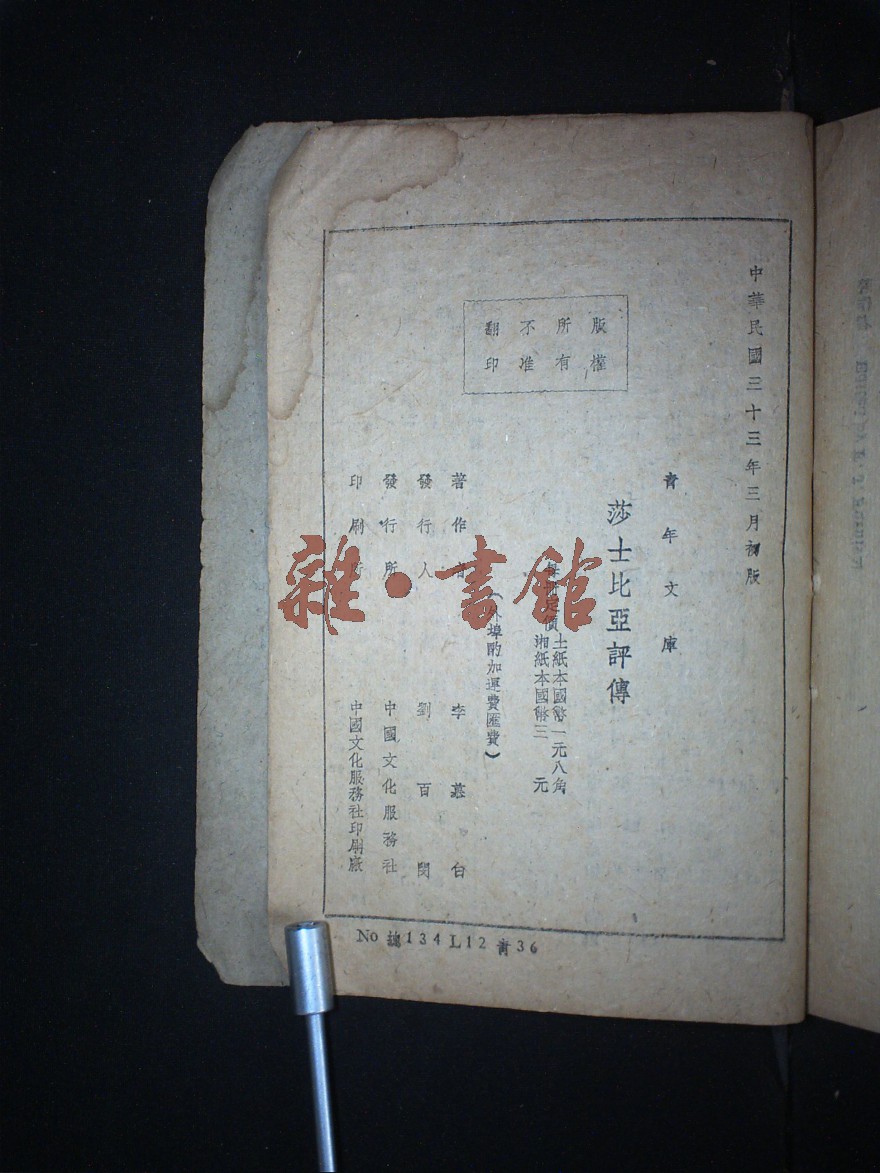 中華民國三十三年三月初版
青年文庫
莎士比亞評傳
每冊定價
土紙本國幣一元八角
湘紙本國幣三元
(外埠酌加運費匯費)
版權
所有
不准
翻印
著作者 李慕白
發行人 劉百閔
發行所 中國文化服務社
印刷所 中國文化服務社印刷廠
No 總134 L12 青36
雜·書館